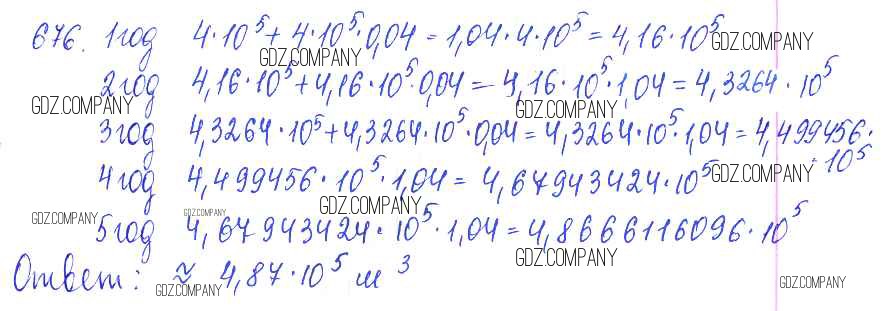 676. 1 год 4·10⁵ + 4·10⁵·0,04 = 1,04·4·10⁵ = 4,16·10⁵
GDZ.COMPANY GDZ.COMPANY
2 год 4,16·10⁵ + 4,16·10⁵·0,04 = 4,16·10⁵·1,04 = 4,3264·10⁵
GDZ.COMPANY GDZ.COMPANY
3 год 4,3264·10⁵ + 4,3264·10⁵·0,04 = 4,3264·10⁵·1,04 = 4,499456·
·10⁵
4 год 4,499456·10⁵·1,04 = 4,67943424·10⁵ GDZ.COMPANY
GDZ.COMPANY GDZ.COMPANY GDZ.COMPANY
5 год 4,67943424·10⁵·1,04 = 4,8666116096·10⁵
GDZ.COMPANY
Ответ: ≈ 4,87·10⁵ м³
GDZ.COMPANY GDZ.COMPANY